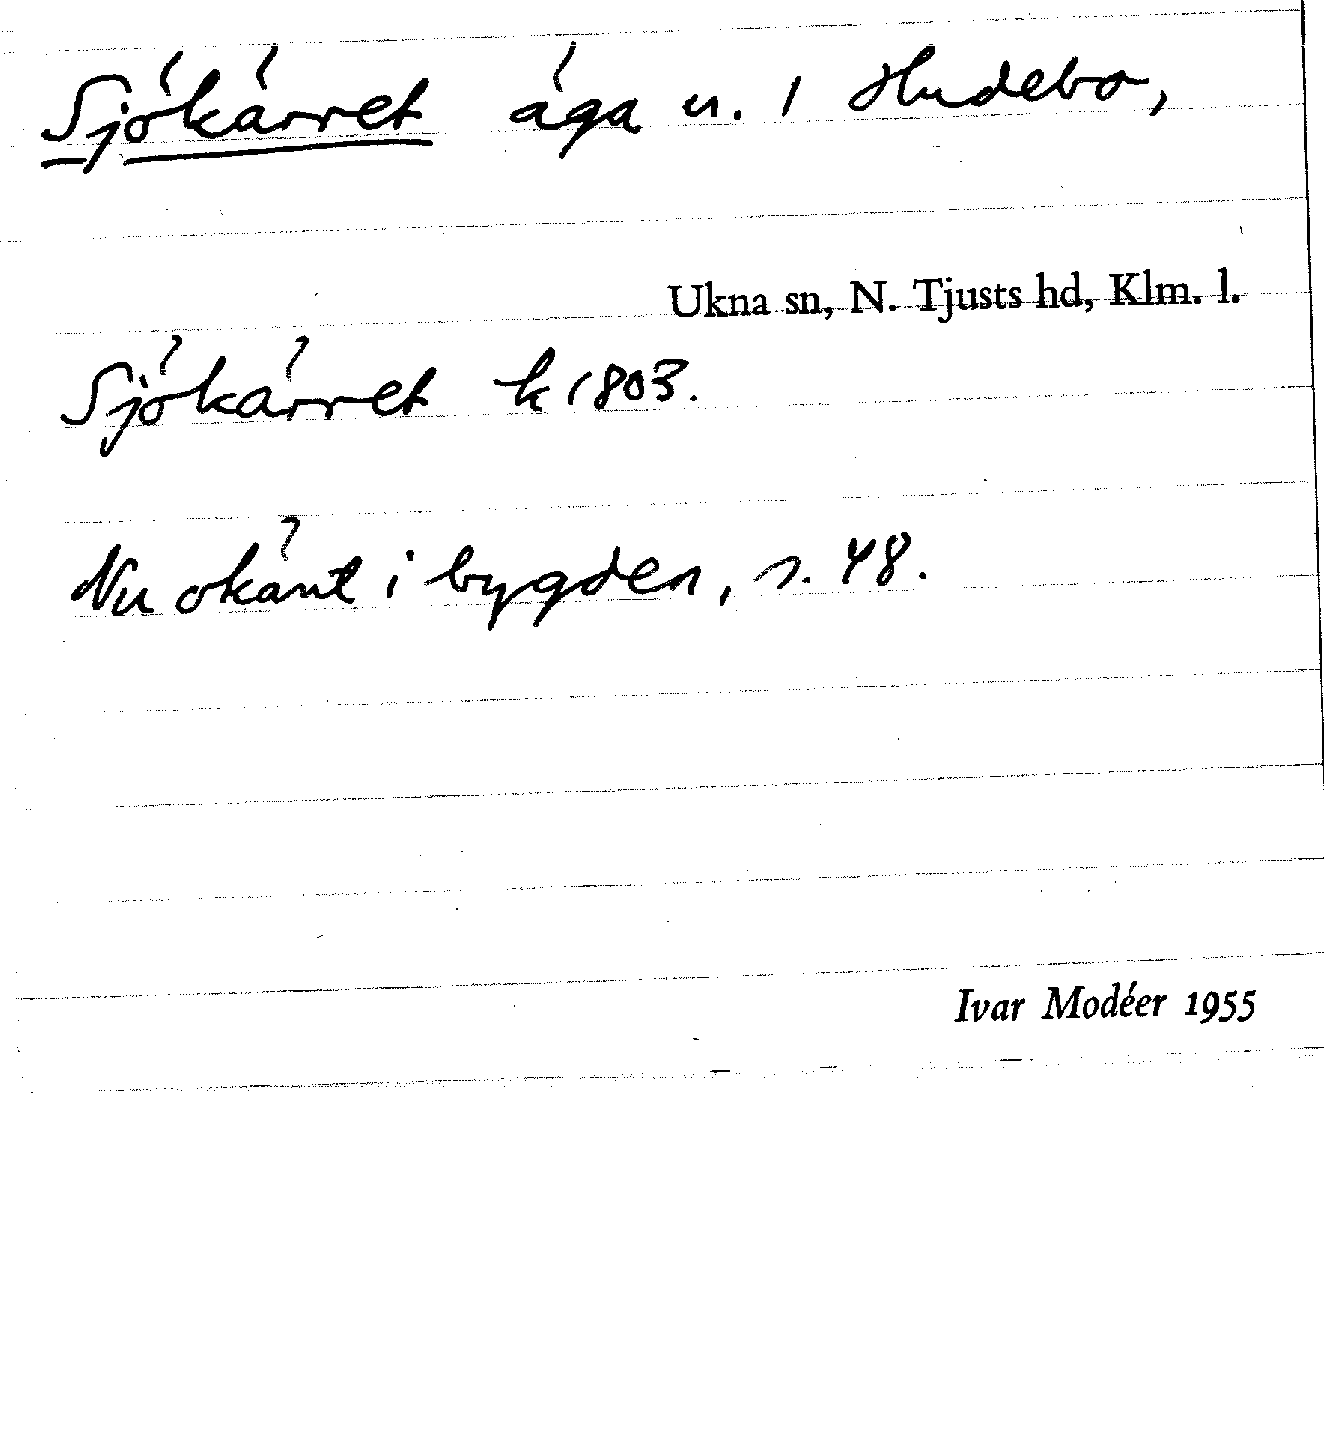 Sjökärret äga n. 1 Hudebo,
Ukna sn, N. Tjusts hd, Klm. l.
Sjökärret k 1803.
Nu okänt i bygden, s. 48.
Ivar Modéer 1955